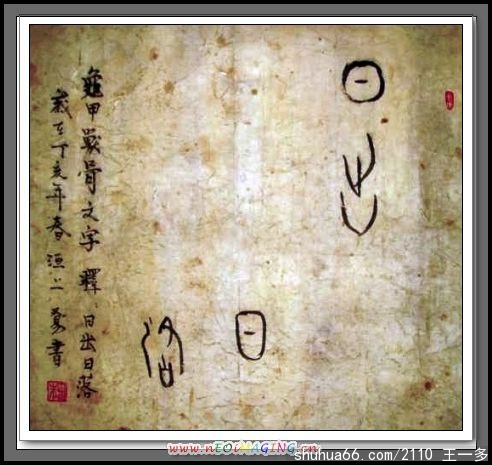 日出
日
落
龜甲獸骨文字 釋：日出日落
歲在丁亥年春 洹上 書
www.nEOiMAGING.cn
shuhua66.com/2110 王一多